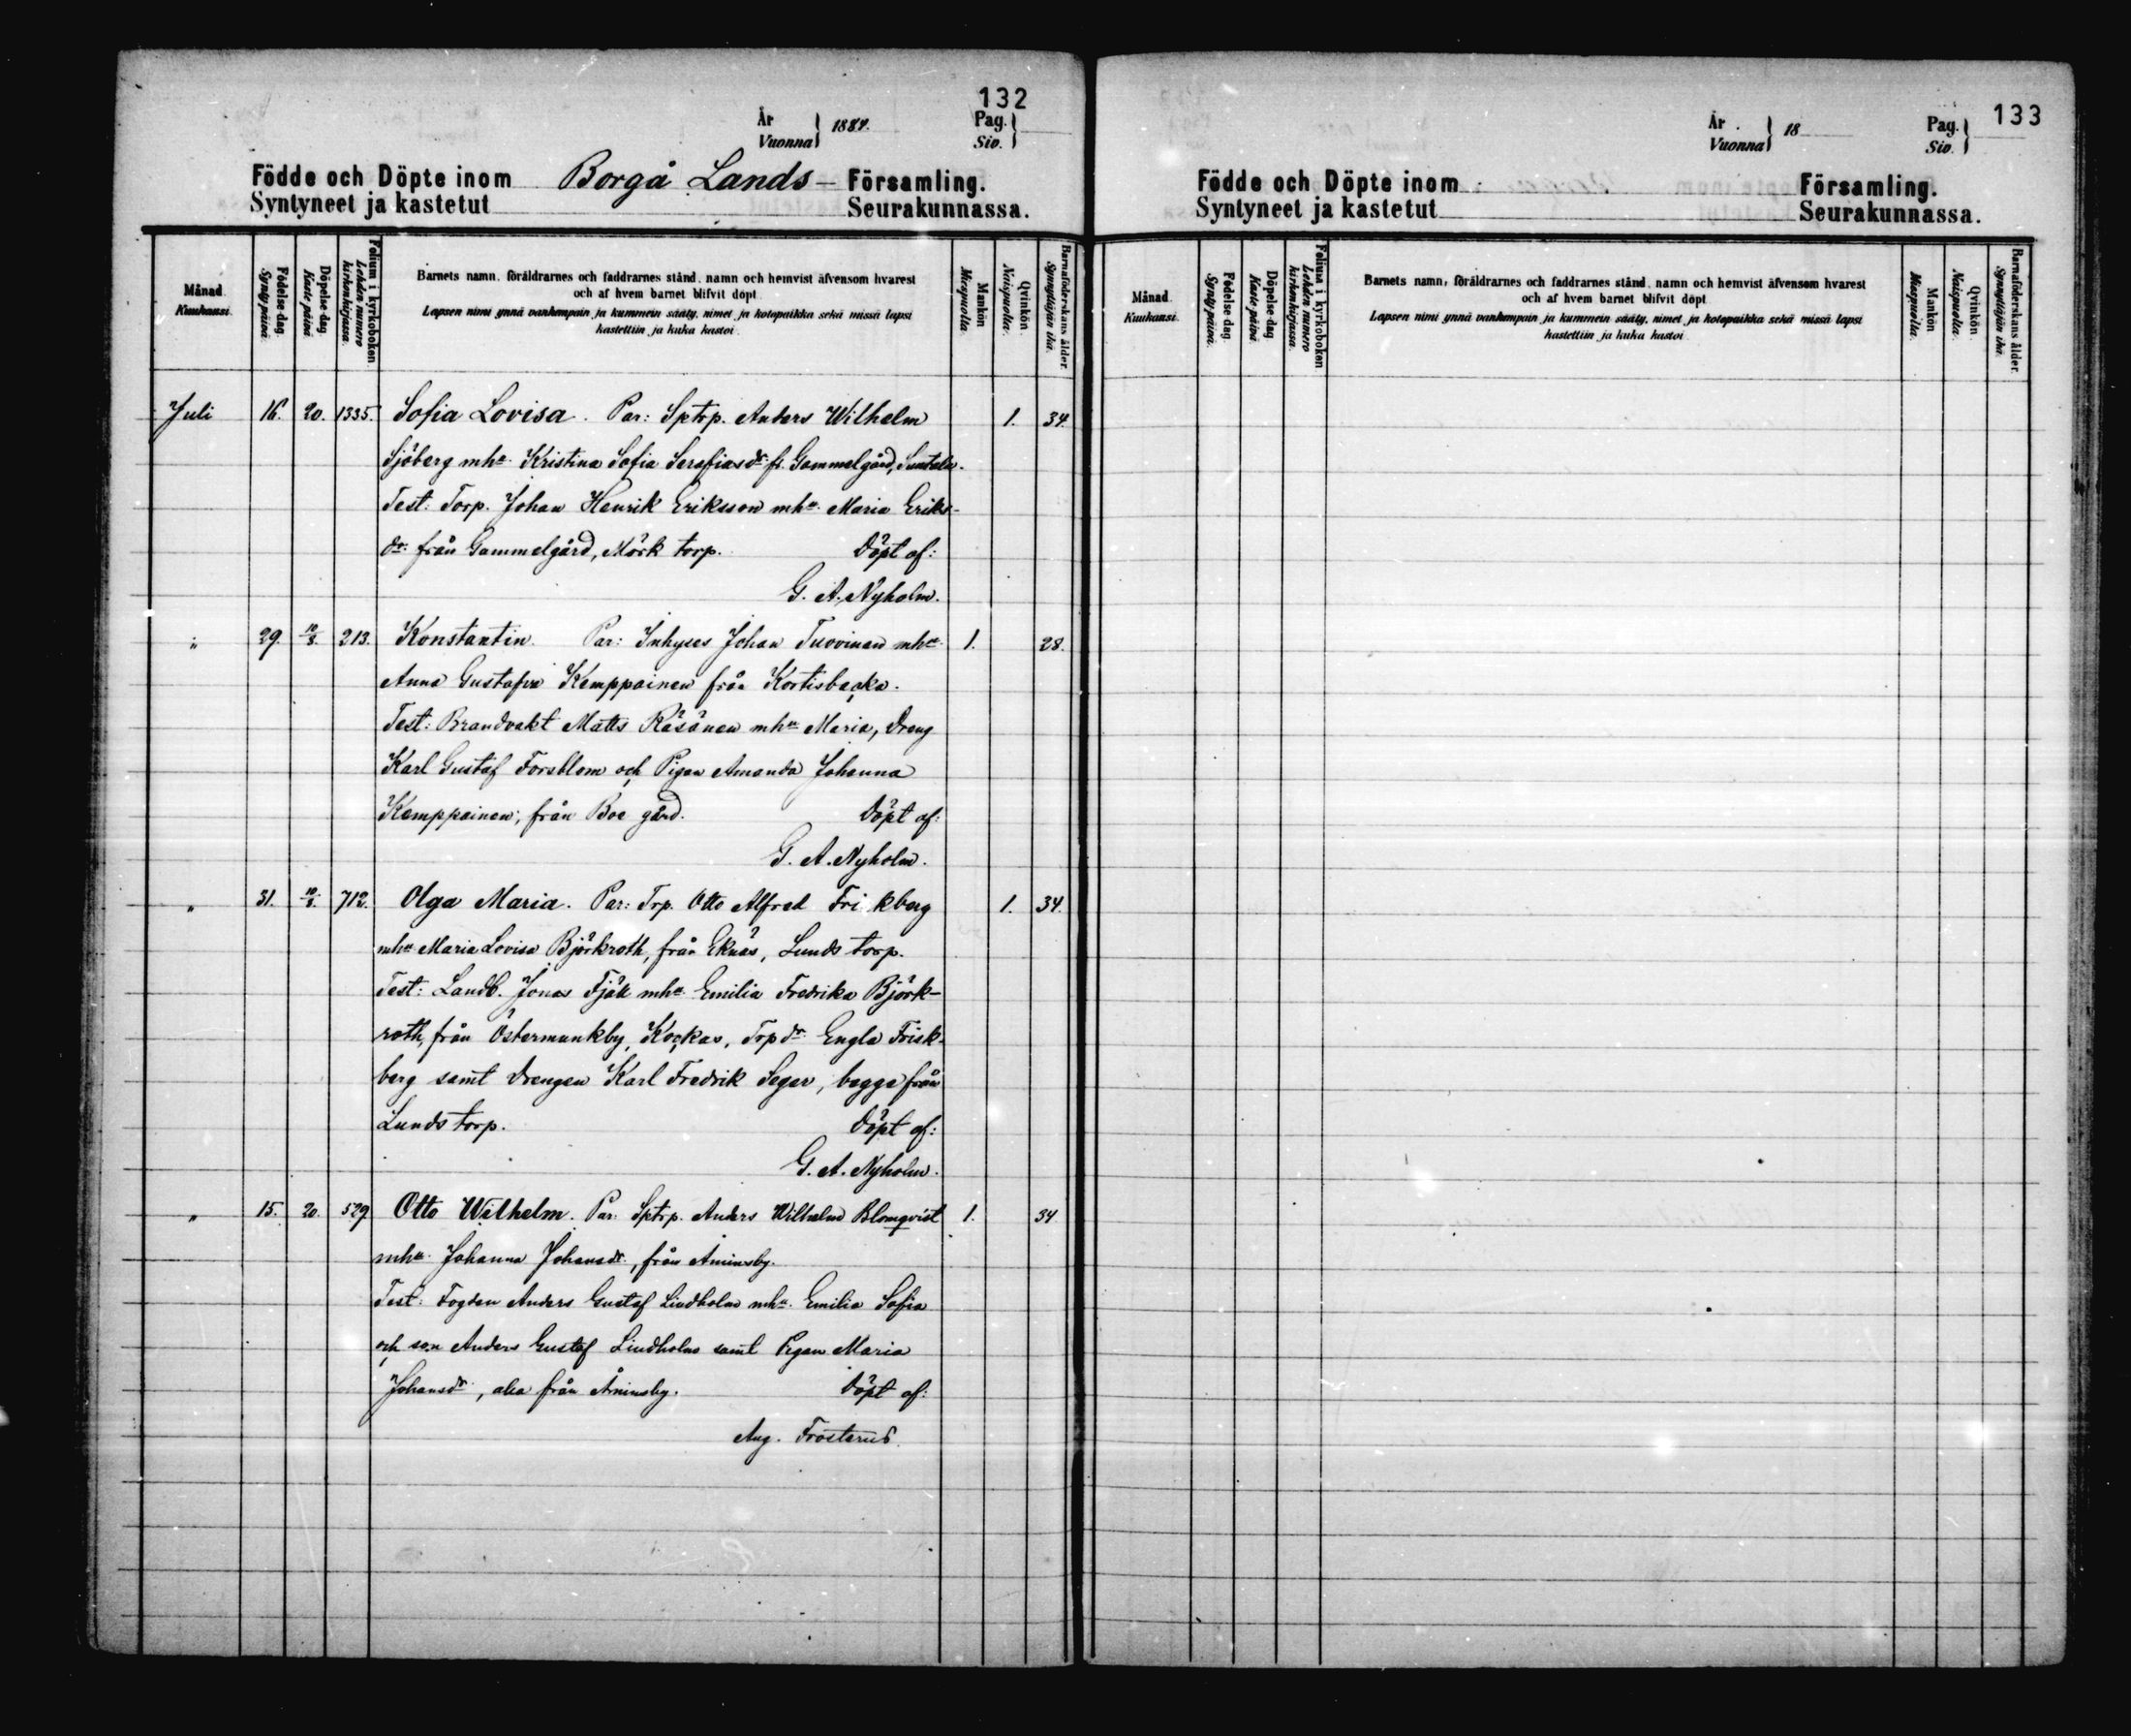 132
År
Vuonna } 1884.
Pag.
Siv. }
Födde och Döpte inom Borgå Lands- Församling.
Syntyneet ja kastetut Seurakunnassa.
Månad Kuukausi.
Födelse-dag Syntypäivä.
Döpelse-dag Kastepäivä.
Folium i kyrkoboken Lehden numero kirkonkirjassa.
Barnets namn, föräldrarnes och faddrarnes stånd, namn och hemvist äfvensom hvarest
och af hvem barnet blifvit döpt.
Lapsen nimi ynnä vanhempain ja kummein sääty, nimet ja kotopaikka sekä missä lapsi
kastettiin ja kuka kastoi.
Mankön Miespuolta.
Qvinkön. Naispuolta.
Barnaföderskans ålder. Synnyttäjän ikä.
Juli 16. 20. 1335. Sofia Lovisa. Par: Sptrp. Anders Wilhelm 1. 34.
Sjöberg mha. Kristina Sofia Serafiasdr. fr. Gammelgård,
Test: Torp. Johan Henrik Eriksson mha. Maria Eriks-
dr. från Gammelgård, Mörk torp. Döpt af:
G. A. Nyholm.
" 29. 10/8. 213. Konstantin. Par: Inhyses Johan Tuovinen mha. 1. 28.
Anna Gustafva Kemppainen från Kortisbacka.
Test: Brandvakt Matts Räsänen mha Maria, Dreng
Karl Gustaf Forsblom och Pigan Amanda Johanna
Kemppainen, från Boe gård. Döpt af:
G. A. Nyholm.
" 31. 10/8. 712. Olga Maria. Par: Trp. Otto Alfred Fri kberg 1. 34.
mha Maria Lovisa Björkroth, från Eknäs, Lunds torp.
Test: Landb. Jonas Fjäll mha. Emilia Fredrika Björk-
roth, från Östermunkby, Kockas, Trpdr. Engla Frisk-
berg samt Drengen Karl Fredrik Seger, begge från
Lunds torp. Döpt af:
G. A. Nyholm.
" 15. 20. 529 Otto Wilhelm. Par. Sptrp. Anders Wilhelm Blomqvist 1. 34
mha. Johanna Johansdr., från Åminsby.
Test: Fogden Anders Gustaf Lindholm mha. Emilia Sofia
och son Anders Gustaf Lindholm samt Pigan Maria
Johansdr., alla från Åminsby. Döpt af:
Aug. Frosterus.
133
År
Vuonna } 18
Pag.
Siv. }
Födde och Döpte inom Församling.
Syntyneet ja kastetut Seurakunnassa.
Månad Kuukausi.
Födelse-dag Syntypäivä.
Döpelse-dag Kastepäivä.
Folium i kyrkoboken Lehden numero kirkonkirjassa.
Barnets namn, föräldrarnes och faddrarnes stånd, namn och hemvist äfvensom hvarest
och af hvem barnet blifvit döpt.
Lapsen nimi ynnä vanhempain ja kummein sääty, nimet ja kotopaikka sekä missä lapsi
kastettiin ja kuka kastoi.
Mankön Miespuolta.
Qvinkön. Naispuolta.
Barnaföderskans ålder. Synnyttäjän ikä.